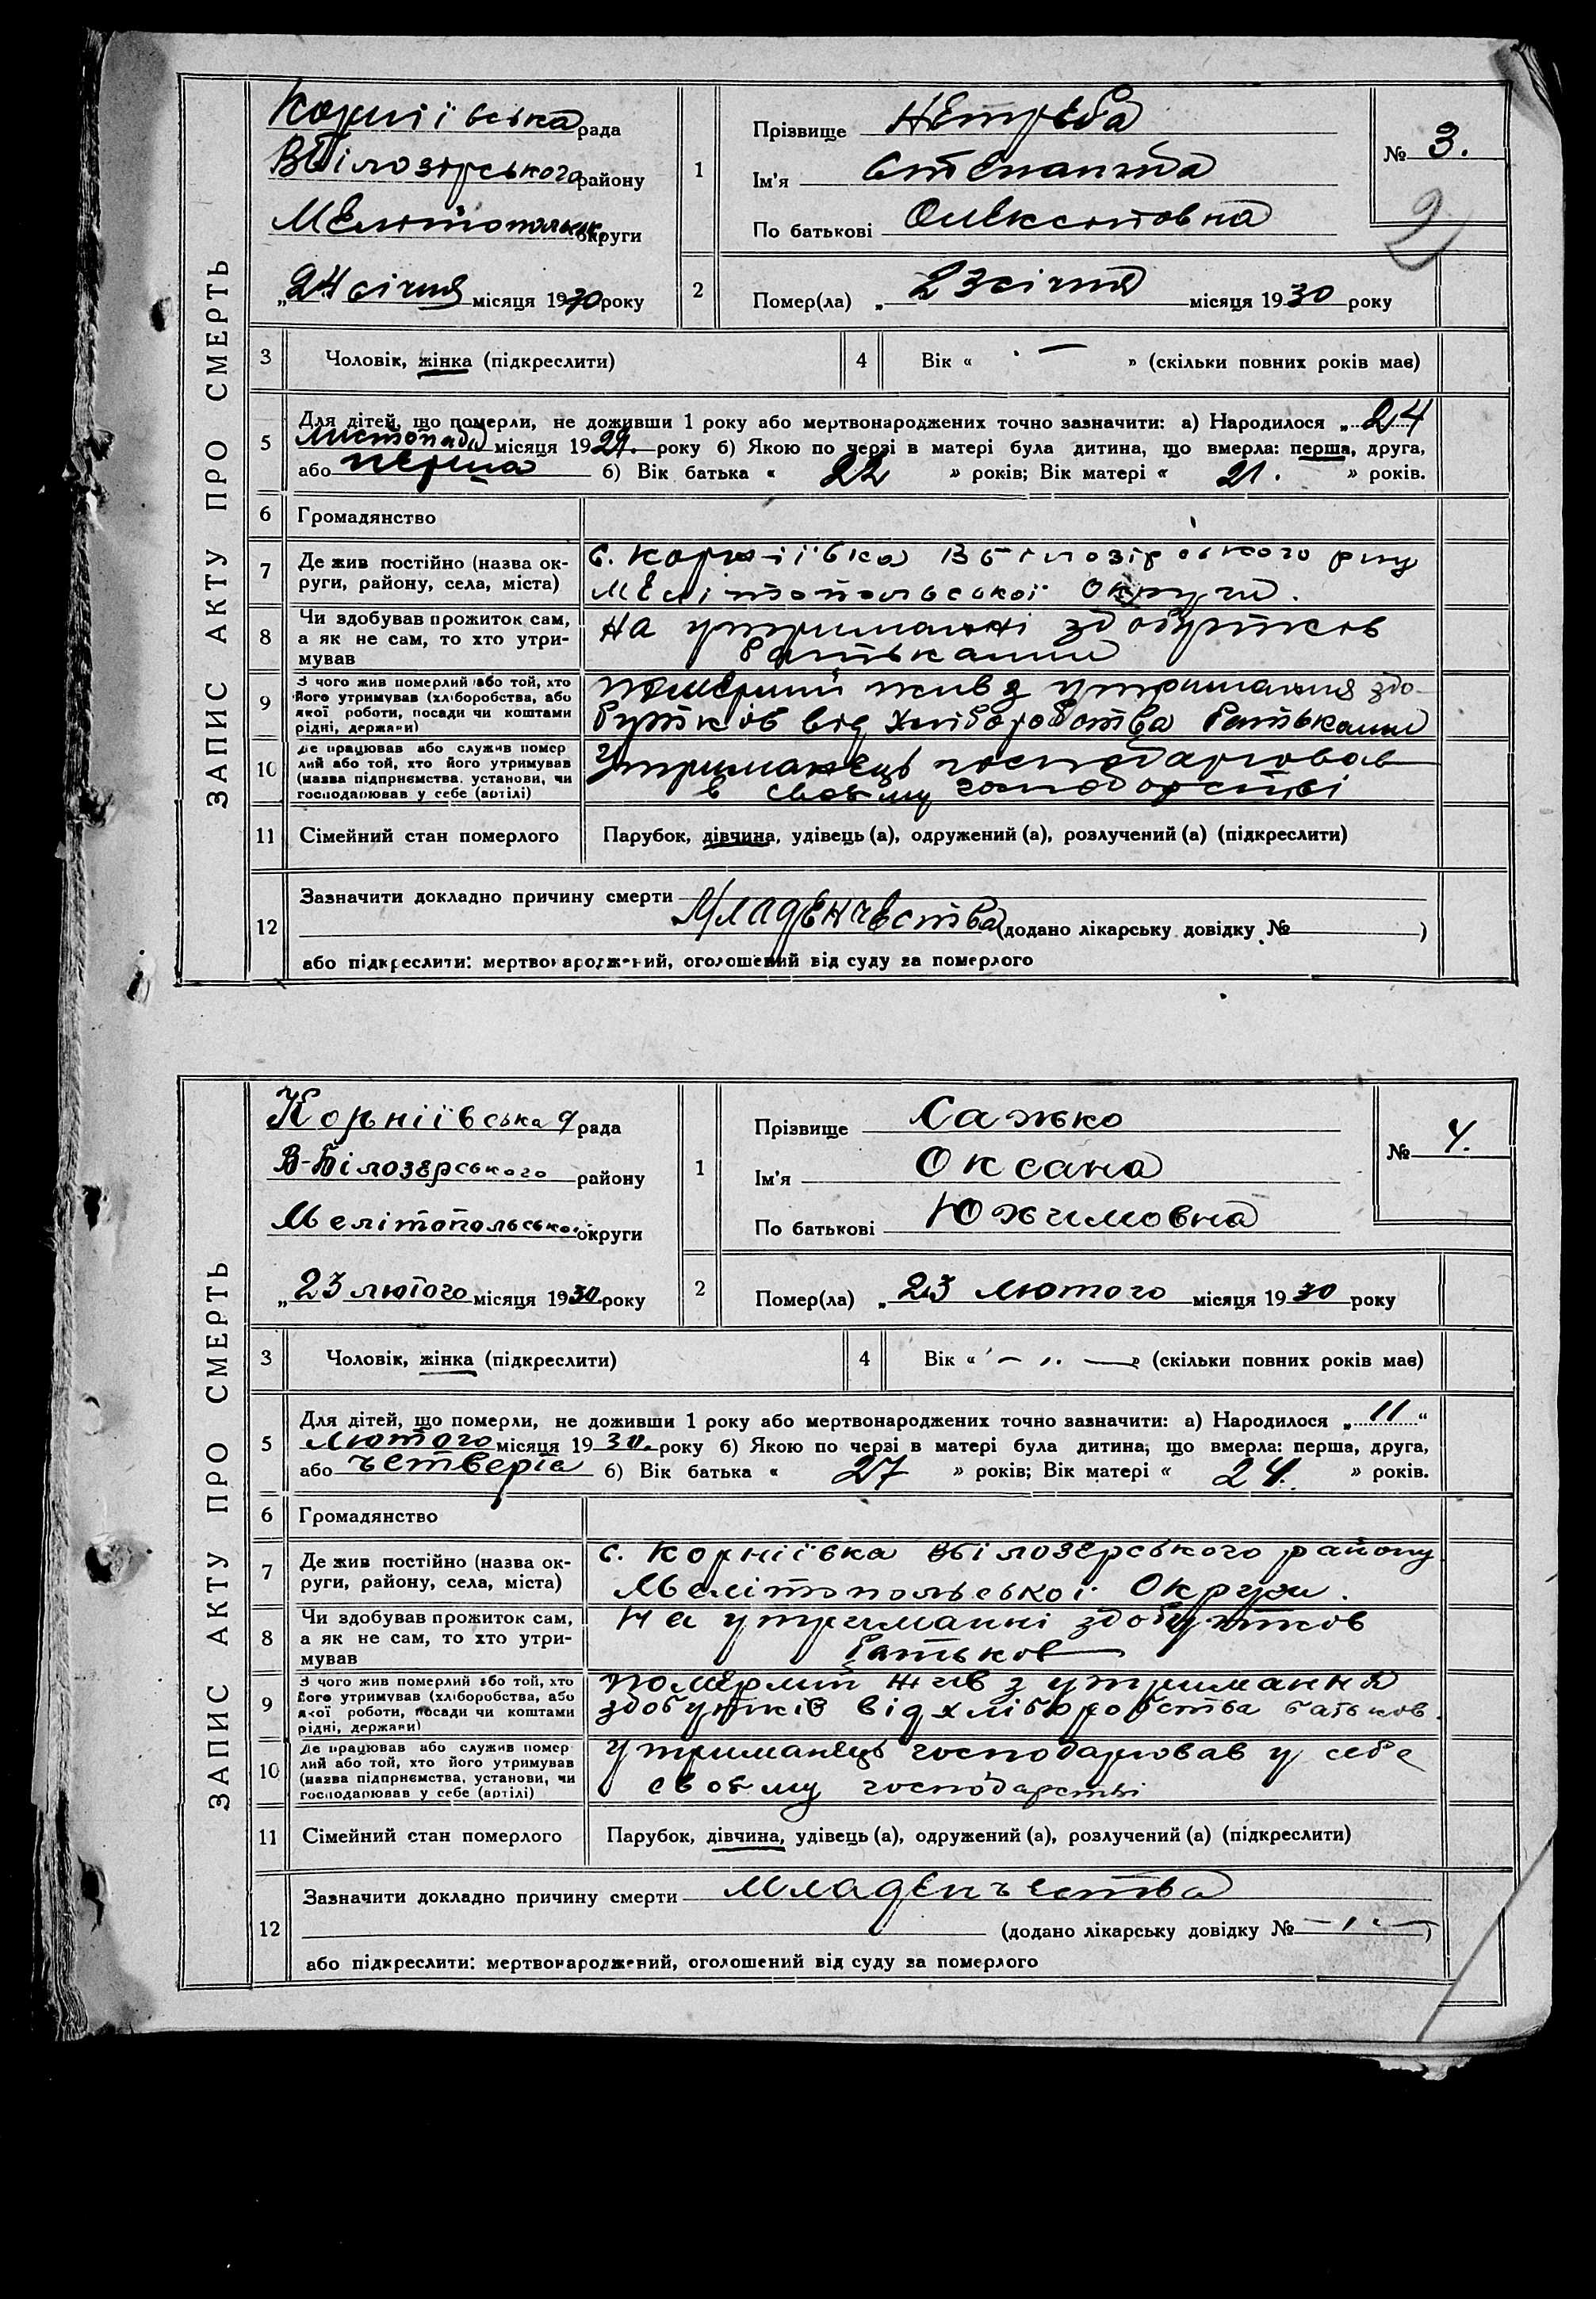 ЗАПИС АКТУ ПРО СМЕРТЬ
Корніївська рада
ВБілозірського району
Мелітопольськ. округи
„24 січня місяця 1930 року
1
Прізвище Нетреба
Ім'я Степанида
По батькові Олексіївна
№ 3.
2
2
Помер(ла) „ 23 січня місяця 1930 року
3 Чоловік, жінка (підкреслити)
4 Вік « — » (скільки повних років мав)
5 Для дітей, що померли, не доживши 1 року або мертвонароджених точно зазначити: а) Народилося „ 24
листопада місяця 1929. року б) Якою по черзі в матері була дитина, що вмерла: перша, друга,
або перша б) Вік батька « 22 » років; Вік матері « 21. » років.
6 Громадянство
7 Де жив постійно (назва ок-
руги, району, села, міста)
с. Корніївка ВБілозірського р-ну
Мелітопольської Округи.
8 Чи здобував прожиток сам,
а як не сам, то хто утри-
мував
на утриманні здобутков
батьками
9 З чого жив померлий або той, хто
його утримував (хліборобства, або
якої роботи, посади чи коштами
рідні, держави)
померший жив з утримання здо-
бутків від хліборобства батьками
10 Де працював або служив помер
лий або той, хто його утримував
(назва підприємства, установи, чи
господарював у себе (артілі)
Утриманець господарював
в своєму господарстві
11 Сімейний стан померлого
Парубок, дівчина, удівець (а), одружений (а), розлучений (а) (підкреслити)
12 Зазначити докладно причину смерти
Младенчества (додано лікарську довідку № )
або підкреслити: мертвонароджений, оголошений від суду за померлого
ЗАПИС АКТУ ПРО СМЕРТЬ
Корніївська рада
В-Білозерського району
Мелітопольської округи
„23 лютого місяця 1930 року
1
Прізвище Сажко
Ім'я Оксана
По батькові Южимовна
№ 4.
2
Помер(ла) „ 23 лютого місяця 1930 року
3 Чоловік, жінка (підкреслити)
4 Вік « — „ — » (скільки повних років мав)
5 Для дітей, що померли, не доживши 1 року або мертвонароджених точно зазначити: а) Народилося „ 11 “
лютого місяця 1930. року б) Якою по черзі в матері була дитина, що вмерла: перша, друга,
або четверта б) Вік батька « 27 » років; Вік матері « 24. » років.
6 Громадянство
7 Де жив постійно (назва ок-
руги, району, села, міста)
с. Корніївка ВБілозерського району
Мелітопольської Округи.
8 Чи здобував прожиток сам,
а як не сам, то хто утри-
мував
На утриманні здобутков
батьков
9 З чого жив померлий або той, хто
його утримував (хліборобства, або
якої роботи, посади чи коштами
рідні, держави)
померлий жив з утримання
здобутків від хліборобства батьков.
10 Де працював або служив помер
лий або той, хто його утримував
(назва підприємства, установи, чи
господарював у себе (артілі)
утриманець господарював у себе
своєму господарстві
11 Сімейний стан померлого
Парубок, дівчина, удівець (а), одружений (а), розлучений (а) (підкреслити)
12 Зазначити докладно причину смерти Младенчества
(додано лікарську довідку № — „ — )
або підкреслити: мертвонароджений, оголошений від суду за померлого